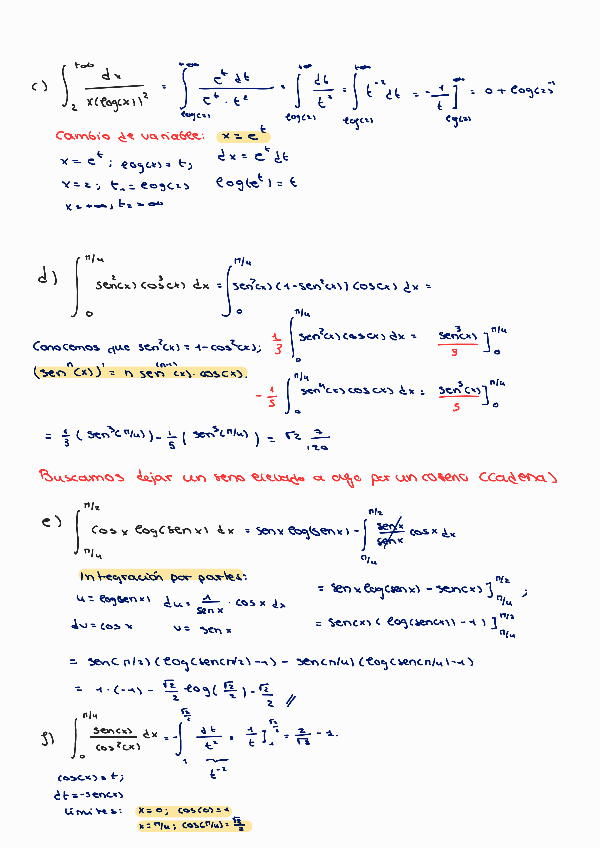 c) ∫₂^{+∞} dx / x(log(x))² = ∫_{log(2)}^{+∞} e^t dt / e^t · t² = ∫_{log(2)}^{+∞} dt / t² = ∫_{log(2)}^{+∞} t^{-2} dt = -1/t ]_{log(2)}^{∞} = 0 + log(2)^{-1}
Cambio de variable: x = e^t
x = e^t ; log(x) = t; dx = e^t dt
x = 2 ; t₁ = log(2) log(e^t) = t
x = +∞; t₂ = ∞
d) ∫₀^{π/4} sen²(x) cos³(x) dx = ∫₀^{π/4} sen²(x) (1-sen²(x)) cos(x) dx =
Conocemos que sen²(x) = 1-cos²(x); 1/3 ∫₀^{π/4} sen²(x) cos(x) dx = sen³(x) / 3 ]₀^{π/4}
(sen^n (x))' = n sen^{(n-1)} (x). cos(x).
- 1/5 ∫₀^{π/4} sen⁴(x) cos(x) dx = sen⁵(x) / 5 ]₀^{π/4}
= 1/3 ( sen³(π/4)) - 1/5 ( sen⁵(π/4) ) = √2 7/120
Buscamos dejar un seno elevado a algo por un coseno (cadena)
e) ∫_{π/4}^{π/2} cos x log(sen x) dx = sen x log(sen x) - ∫_{π/4}^{π/2} sen x / sen x cos x dx
Integración por partes:
= sen x log(sen x) - sen(x) ]_{π/4}^{π/2} ;
u = log sen x) du = 1 / sen x · cos x dx
dv = cos x v = sen x
= sen(x) ( log(sen(x)) - 1 ) ]_{π/4}^{π/2}
= sen( π/2) (log(sen(π/2) -1) - sen(π/4) (log(sen(π/4) -1)
= 1 · (-1) - √2/2 log( √2/2 ) - √2/2 //
f) ∫₀^{π/4} sen(x) / cos²(x) dx = - ∫₁^{√2/2} dt / t² = 1/t ]₁^{√2/2} = 2/√2 - 1.
t^{-2}
cos(x) = t;
dt = -sen(x)
Límites: x = 0 ; cos(0) = 1
x = π/4 ; cos(π/4) = √2/2